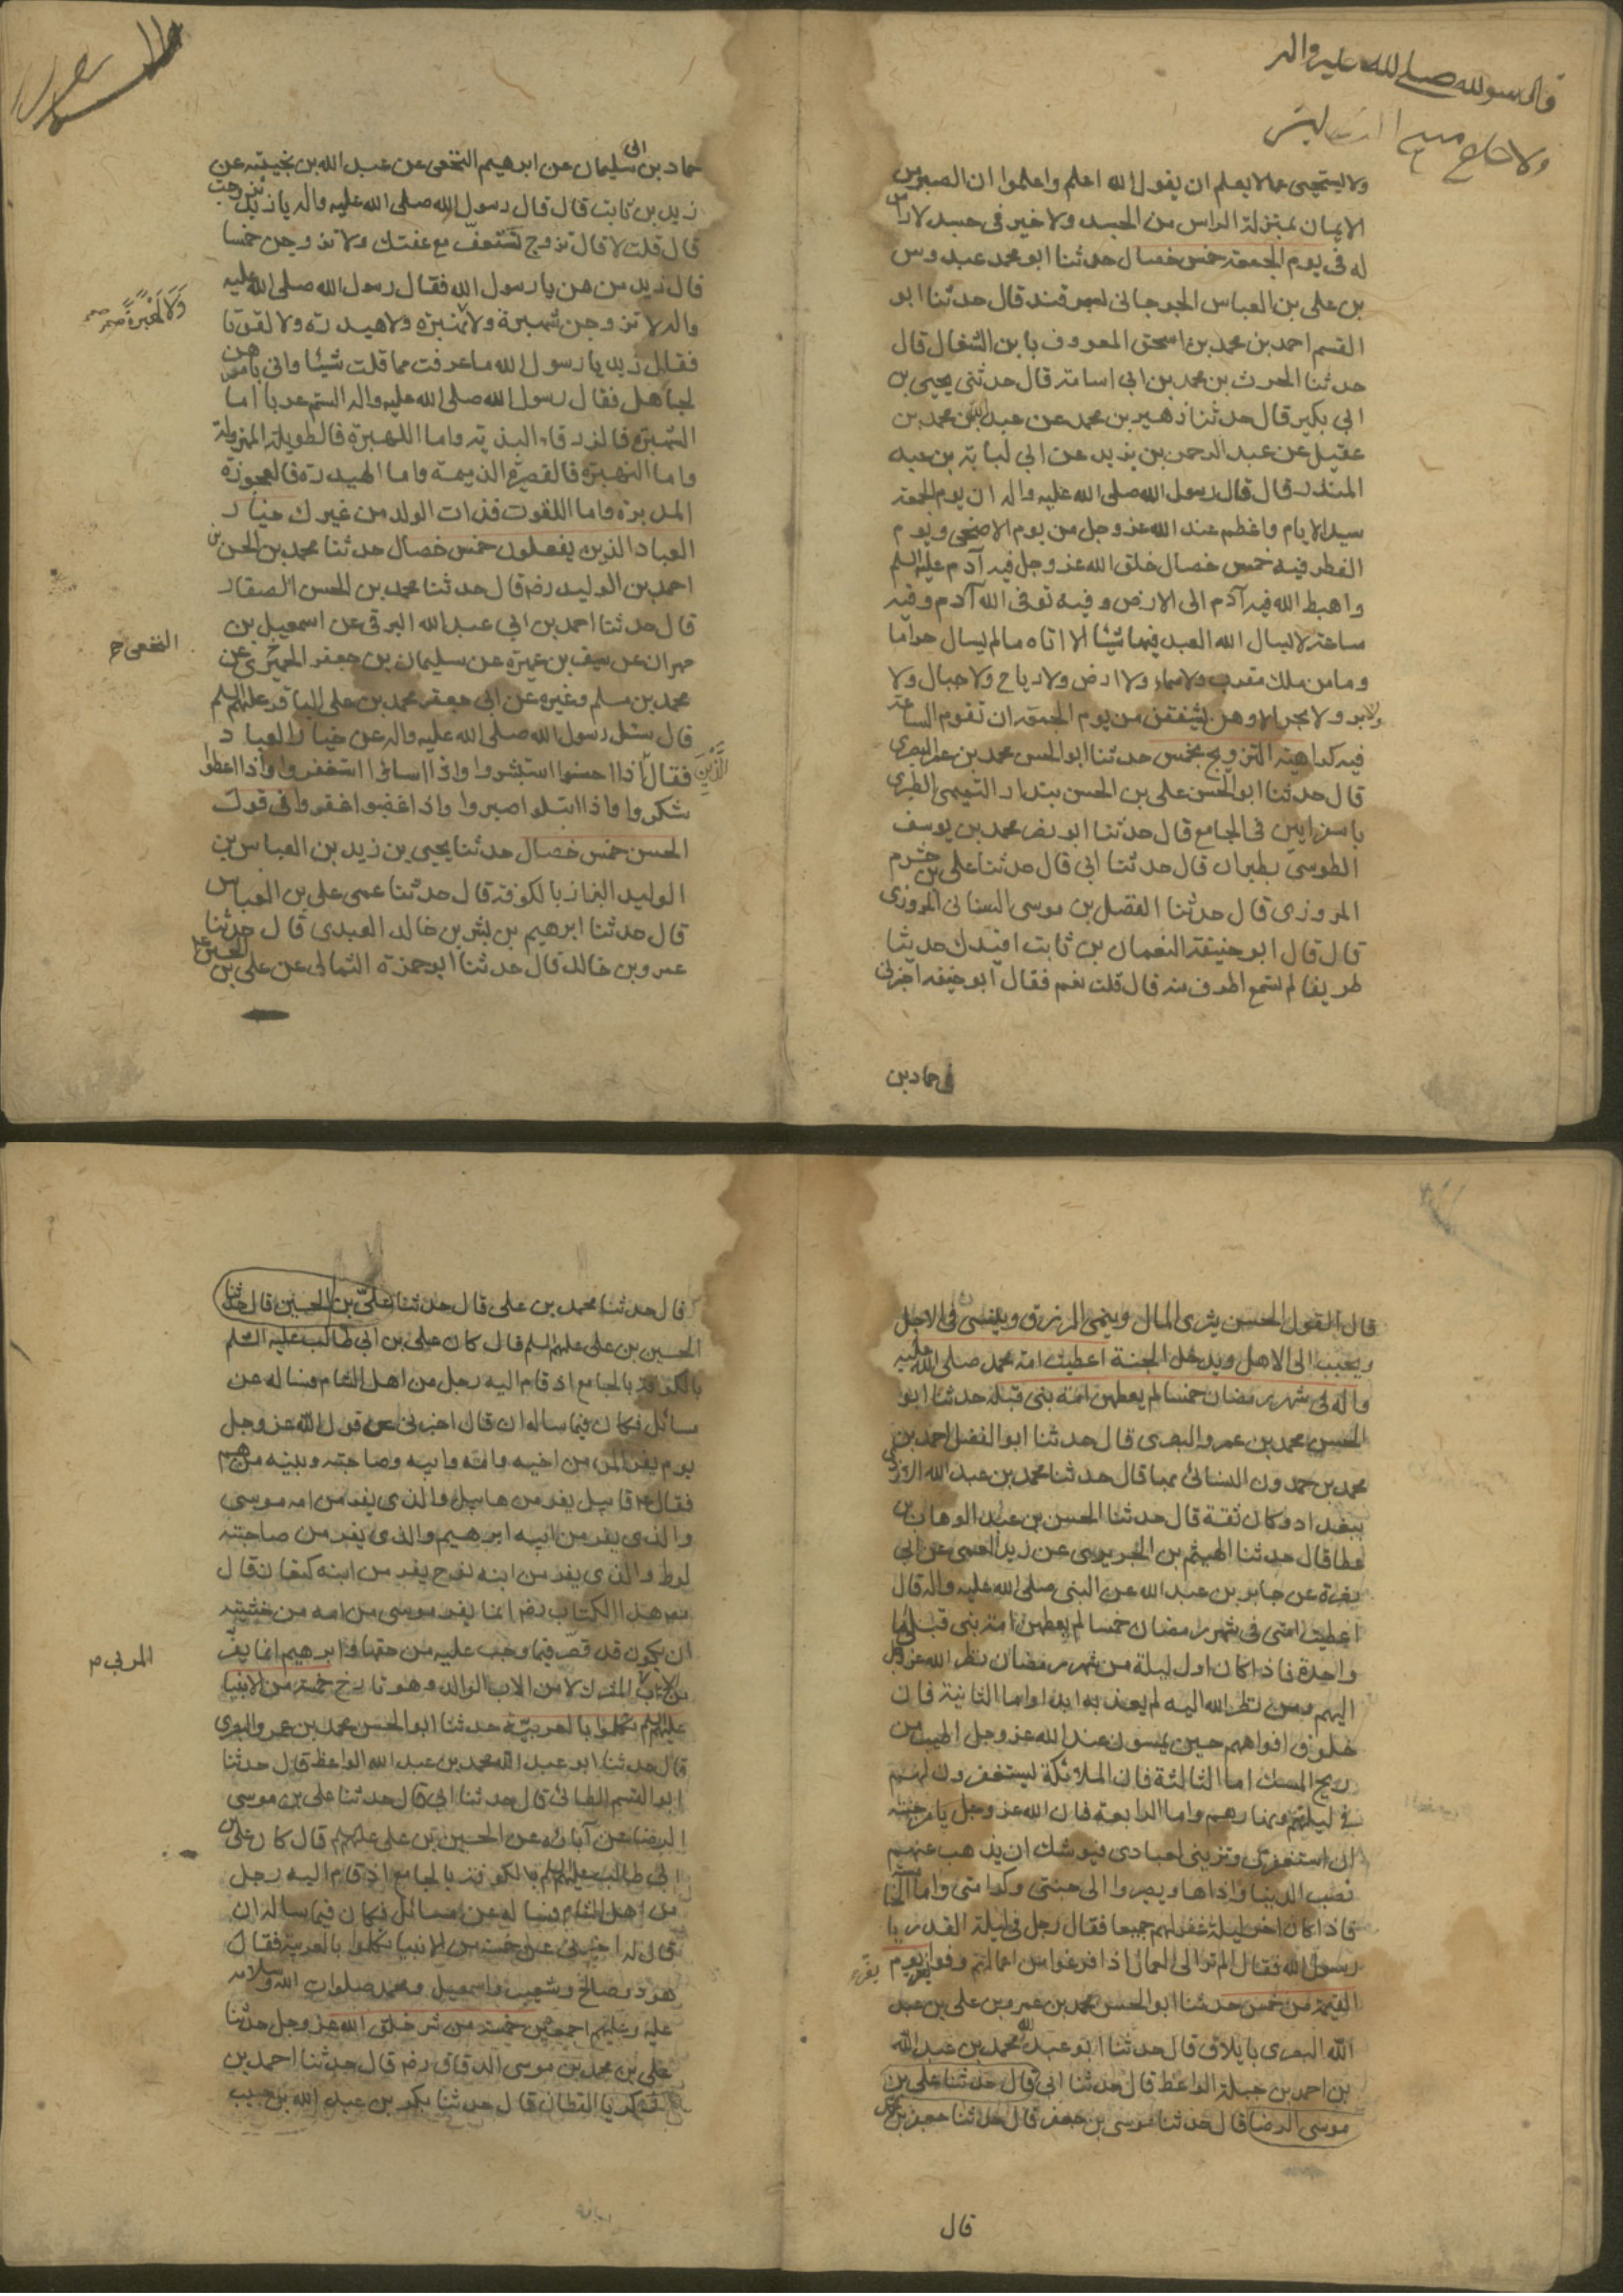 قال رسول الله صلى الله عليه واله
ولا يستحيى عما لا يعلم ان يقول الله اعلم واعلموا ان الصبر من
الايمان بمنزلة الراس من الجسد ولا خير فى جسد لا راس
له فى يوم الجمعة خمس خصال حدثنا ابو محمد عبدوس
بن على بن العباس الجرجانى بسمرقند قال حدثنا ابو
القسم احمد بن محمد بن اسحق المعروف بابن الشغال قال
حدثنا الحرث بن محمد بن ابى اسامة قال حدثنى يحيى بن
ابى بكير قال حدثنا زهير بن محمد عن عبد الله بن محمد بن
عقيل عن عبد الرحمن بن يزيد عن ابى لبابة بن عبد
المنذر قال قال رسول الله صلى الله عليه واله ان يوم الجمعة
سيد الايام واعظم عند الله عز وجل من يوم الاضحى ويوم
الفطر فيه خمس خصال خلق الله عز وجل فيه آدم عليه السلم
واهبط الله فيه آدم الى الارض وفيه توفى الله آدم وفيه
ساعة لا يسال الله العبد فيها شيئا الا اتاه ما لم يسال حراما
وما من ملك مقرب ولا سماء ولا ارض ولا رياح ولا جبال ولا
بر ولا بحر الا وهن يشفقن من يوم الجمعة ان تقوم الساعة
فيه كراهية التزويج بخمس حدثنا ابو الحسن محمد بن عمر البصرى
قال حدثنا ابو الحسن على بن الحسن بندار التميمى الطبرى
باسفرايين فى الجامع قال حدثنا ابو نصر محمد بن يوسف
الطوسى بطبران قال حدثنا ابى قال حدثنا على بن خشرم
المروزى قال حدثنا الفضل بن موسى السنانى المروزى
قال قال ابو حنيفة النعمان بن ثابت افيدك حديثا
طريفا لم تسمع اطرف منه قال قلت نعم فقال ابو حنيفه اخبرنى
حماد بن
حماد بن ابى سليمان عن ابرهيم النخعى عن عبد الله بن نجيبة عن
زيد بن ثابت قال قال رسول الله صلى الله عليه واله يا زيد تزوجت
قال قلت لا قال تزوج تستعف مع عفتك ولا تزوجن خمسا
قال زيد من هن يا رسول الله فقال رسول الله صلى الله عليه
واله لا تزوجن شهبرة ولا نهبرة ولا هيدرة ولا لفوتا
ولا لهبرة
فقال زيد يا رسول الله ما عرفت مما قلت شيئا وانى بامرهن
لجاهل فقال رسول الله صلى الله عليه واله الستم عربا اما
الشهبرة فالزرقاء البذية واما اللهبرة فالطويلة المهزولة
واما النهبرة فالقصيرة الذميمة واما الهيدرة فالعجوزة
المدبرة واما اللفوت فذات الولد من غيرك خيار
العباد الذين يفعلون خمس خصال حدثنا محمد بن الحسن بن
احمد بن الوليد رضه قال حدثنا محمد بن الحسن الصفار
قال حدثنا احمد بن ابى عبد الله البرقى عن اسمعيل بن
النخعى
مهران عن سيف بن عميرة عن سليمان بن جعفر الحميرى عن
محمد بن مسلم وغيره عن ابى جعفر محمد بن على الباقر عليهم السلم
قال سئل رسول الله صلى الله عليه واله عن خيار العباد
فقال الذين اذا احسنوا استبشروا واذا اساؤا استغفروا واذا اعطوا
شكروا واذا ابتلوا صبروا واذا غضبوا غفروا فى قول
الحسن خمس خصال حدثنا يحيى بن زيد بن العباس بن
الوليد البزاز بالكوفة قال حدثنا عمى على بن العباس
قال حدثنا ابرهيم بن بشر بن خالد العبدى قال حدثنا
عمرو بن خالد قال حدثنا ابو حمزة الثمالى عن على بن الحسين
قال القول الحسن يثرى المال وينمى الرزق وينسى فى الاجل
ويحبب الى الاهل ويدخل الجنة اعطيت امة محمد صلى الله عليه
واله فى شهر رمضان خمسا لم يعطهن امة نبى قبله حدثنا ابو
الحسن محمد بن عمرو البصرى قال حدثنا ابو الفضل احمد بن
محمد بن حمدون النسائى بمبا قال حدثنا محمد بن عبد الله الازدى
ببغداد وكان ثقة قال حدثنا الحسن بن عبد الوهاب بن
عطا قال حدثنا الهيثم بن الحويرى عن زيد العمى عن ابى
نضرة عن جابر بن عبد الله عن النبى صلى الله عليه واله قال
اعطيت امتى فى شهر رمضان خمسا لم يعطهن امة نبى قبلى اما
واحدة فاذا كان اول ليلة من شهر رمضان نظر الله عز وجل
اليهم ومن نظر الله اليه لم يعذبه ابدا واما الثانية فان
خلوف افواههم حين يمسون عند الله عز وجل اطيب من
ريح المسك اما الثالثة فان الملائكة يستغفرون لهم
فى ليلهم ونهارهم واما الرابعة فان الله عز وجل يامر جنته
ان استغفرى وتزينى لعبادى فيوشك ان يذهب عنهم
نصب الدنيا واذاها ويصيروا الى جنتى وكرامتى واما الخامسة
فاذا كان اخر ليلة غفر لهم جميعا فقال رجل فى ليلة القدر يا
رسول الله فقال الم تر الى العمال اذا فرغوا من اعمالهم وفوا يفر يوم
القيمة من خمس حدثنا ابو الحسن محمد بن عمرو بن على بن عبد
الله البصرى بايلاق قال حدثنا ابو عبد الله محمد بن عبد الله
بن احمد بن جبلة الواعظ قال حدثنا ابى قال حدثنا على بن
موسى الرضا قال حدثنا موسى بن جعفر قال حدثنا جعفر بن محمد
قال
قال حدثنا محمد بن على قال حدثنا على بن الحسين قال حدثنا
الحسين بن على عليهم السلم قال كان على بن ابى طالب عليه السلم
بالكوفة بالجامع اذ قام اليه رجل من اهل الشام فساله عن
مسائل فكان فيما ساله ان قال اخبرنى عن قول الله عز وجل
يوم يفر المرء من اخيه وامه وابيه وصاحبته وبنيه من هم
فقال ع قابيل يفر من هابيل والذى يفر من امه موسى
والذى يفر من ابيه ابرهيم والذى يفر من صاحبته
لوط والذى يفر من ابنه نوح يفر من ابنه كنعان قال
مص هذا الكتاب رضه انما يفر موسى من امه من خشية
ان يكون قد قصر فيما وجب عليه من حقها وابرهيم انما يفر
المربى
من الاب المشرك لا من الاب الوالد وهو تارخ خمسة من الانبيا
عليهم السلم تكلموا بالعربية حدثنا ابو الحسن محمد بن عمرو البصرى
قال حدثنا ابو عبد الله محمد بن عبد الله الواعظ قال حدثنا
ابو القسم الطائى قال حدثنا ابى قال حدثنا على بن موسى
الرضا عن آبائه عن الحسين بن على عليهم قال كان على بن
ابى طالب عليه السلم بالكوفة بالجامع اذ قام اليه رجل
من اهل الشام فساله عن مسائل فكان فيما ساله ان
قال له اخبرنى عن خمسة من الانبيا تكلموا بالعربية فقال
هود وصالح وشعيب واسمعيل ومحمد صلوات الله وسلامه
عليه وعليهم اجمعين خمسة من شر خلق الله عز وجل حدثنا
على بن محمد بن موسى الدقاق رضه قال حدثنا احمد بن
زكريا القطان قال حدثنا بكر بن عبد الله بن حبيب